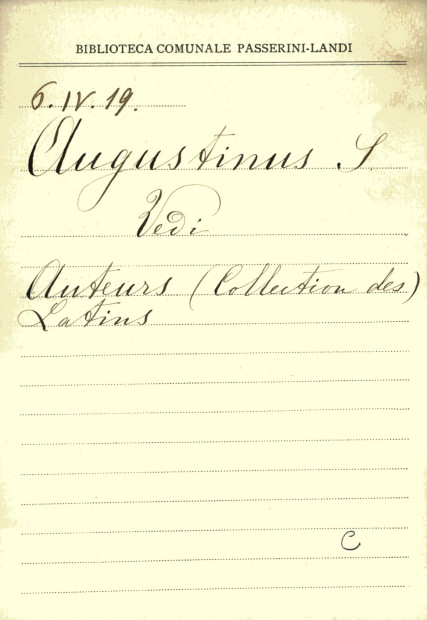 BIBLIOTECA COMUNALE PASSERINI-LANDI
6. IV. 19.
Augustinus S.
Vedi
Auteurs (Collection des)
Latins
C